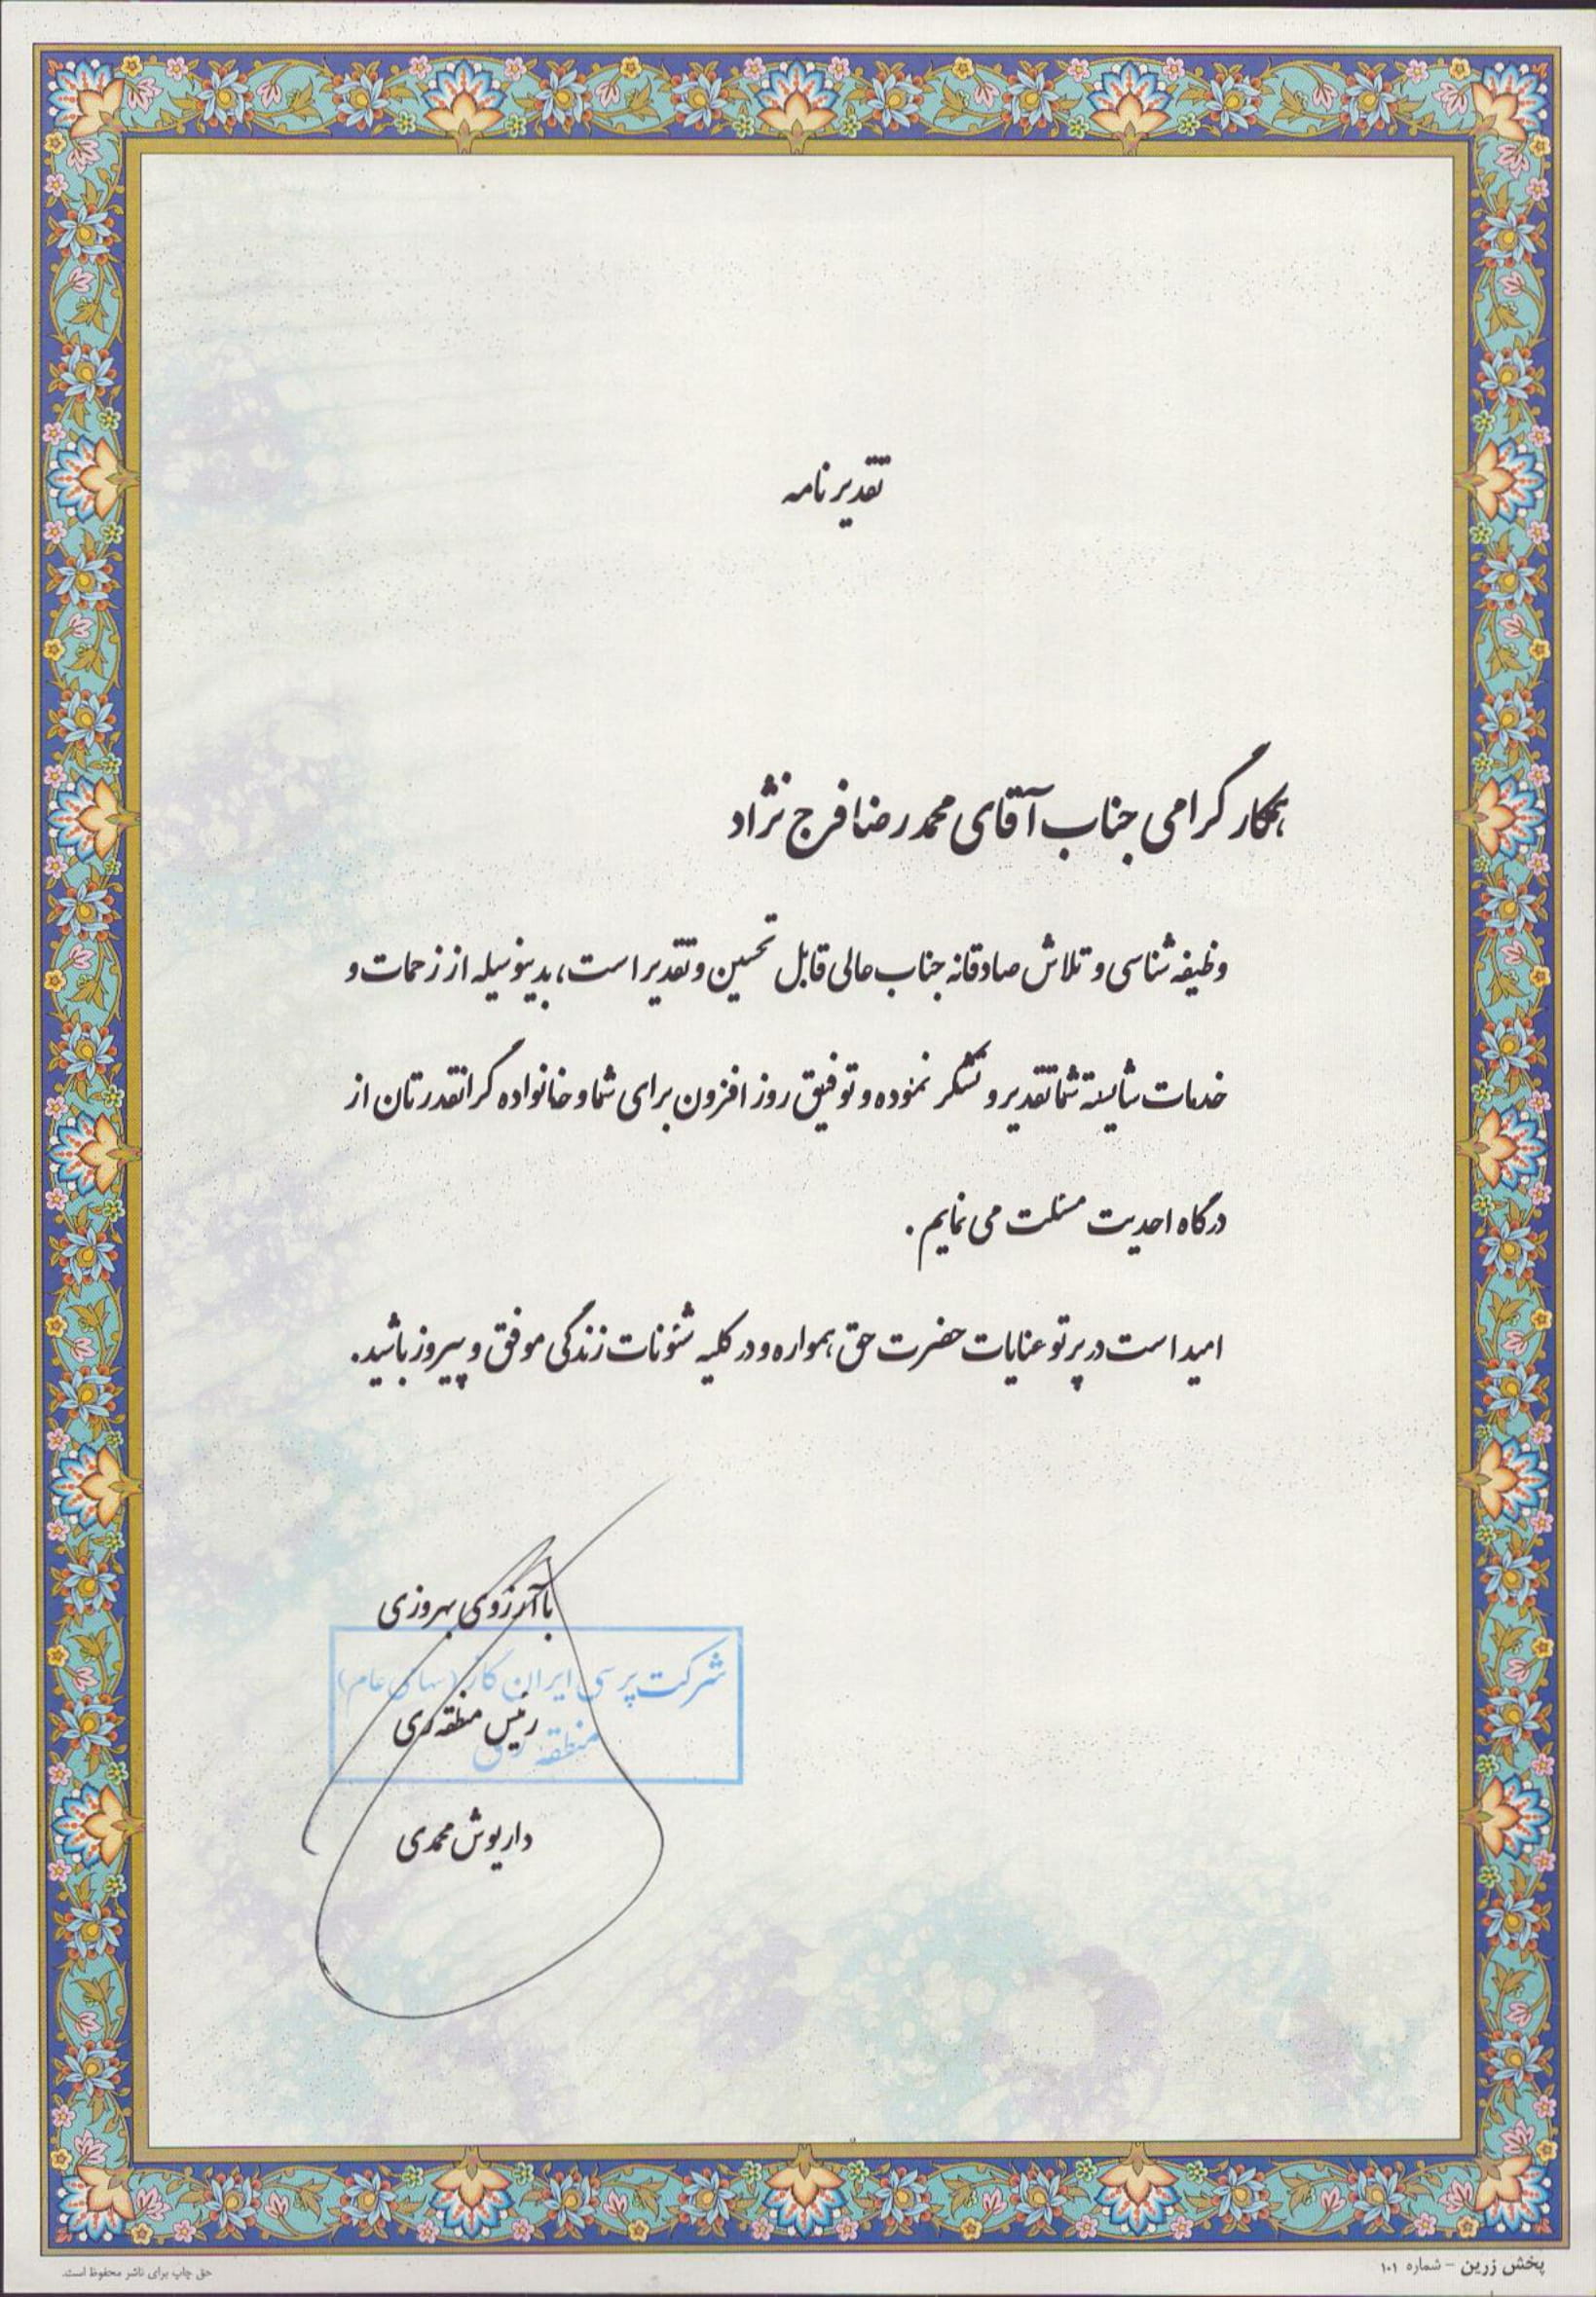 تقدیر نامه
همکار گرامی جناب آقای محمد رضا فرج نژاد
وظیفه شناسی و تلاش صادقانه جناب عالی قابل تحسین و تقدیر است، بدینوسیله از زحمات و
خدمات شایسته شما تقدیر و تشکر نموده و توفیق روز افزون برای شما و خانواده گرانقدرتان از
درگاه احدیت مسئلت می نمایم .
امید است در پرتو عنایات حضرت حق ، همواره و در کلیه شئونات زندگی موفق و پیروز باشید.
با آرزوی بهروزی
شرکت پرسی ایران گاز (سهامی عام)
رئیس منطقه ری
منطقه
داریوش محمدی
پخش زرین - شماره ۱۰۱
حق چاپ برای ناشر محفوظ است.